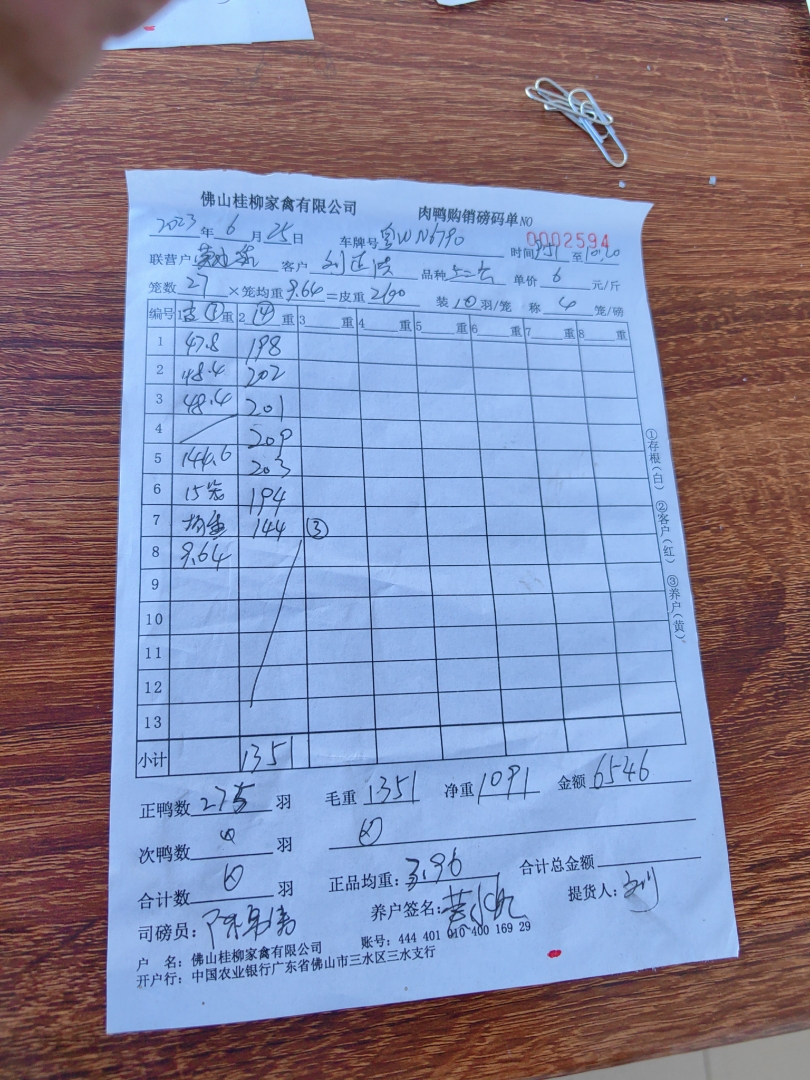 佛山桂柳家禽有限公司 肉鸭购销磅码单NO 0002594
2023年6月25日 车牌号 WN6790 时间 9:51 至 10:20
联营户 客户 品种 单价 6 元/斤
笼数 27 ×笼均重 9.64 =皮重 260 装 10 羽/笼 称 4 笼/磅
编号 1皮③重 2 ④ 重 3 重 4 重 5 重 6 重 7 重 8 重
1 47.8 198
2 48.4 202
3 48.4 201
4 209
5 144.6 203
6 15笼 194
7 均重 144 ③
8 9.64
9
10
11
12
13
小计 1351
正鸭数 275 羽 毛重 1351 净重 1091 金额 6546
次鸭数 羽
合计数 羽 正品均重: 3.96 合计总金额
司磅员: 养户签名: 提货人: 刘
户 名: 佛山桂柳家禽有限公司 账号: 444 401 010 400 169 29
开户行: 中国农业银行广东省佛山市三水区三水支行
①存根(白) ②客户(红) ③养户(黄)